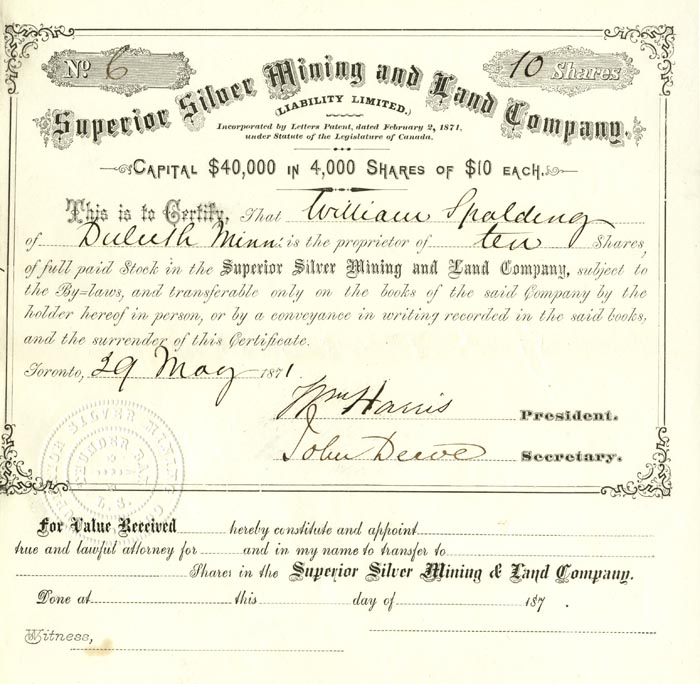 No 6
10 Shares
Superior Silver Mining and Land Company.
(LIABILITY LIMITED.)
Incorporated by Letters Patent, dated February 2, 1871,
under Statute of the Legislature of Canada.
CAPITAL $40,000 IN 4,000 SHARES OF $10 EACH.
This is to Certify, That William Spalding
of Duluth Minn. is the proprietor of ten Shares,
of full paid Stock in the Superior Silver Mining and Land Company, subject to
the By=laws, and transferable only on the books of the said Company by the
holder hereof in person, or by a conveyance in writing recorded in the said books,
and the surrender of this Certificate.
Toronto, 29 May 1871.
Wm Harris President.
John Secretary.
SUPERIOR SILVER MINING
THUNDER BAY
L. S.
For Value Received hereby constitute and appoint
true and lawful attorney for and in my name to transfer to
Shares in the Superior Silver Mining & Land Company.
Done at this day of 187 .
Witness,